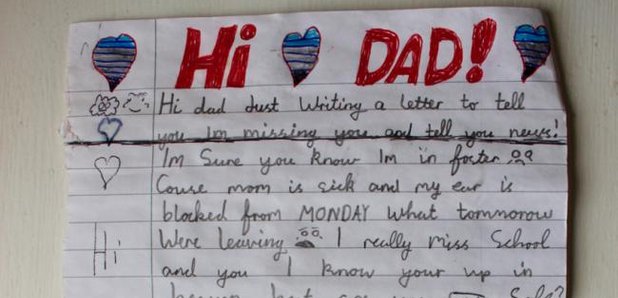 Hi DAD!
Hi dad Just Writing a letter to tell
you Im missing you and tell you news!
Im Sure you know Im in foster
Couse mom is sick and my ear is
blocked from MONDAY What tommorow
Hi
Were leaving I really miss School
and you I know your up in